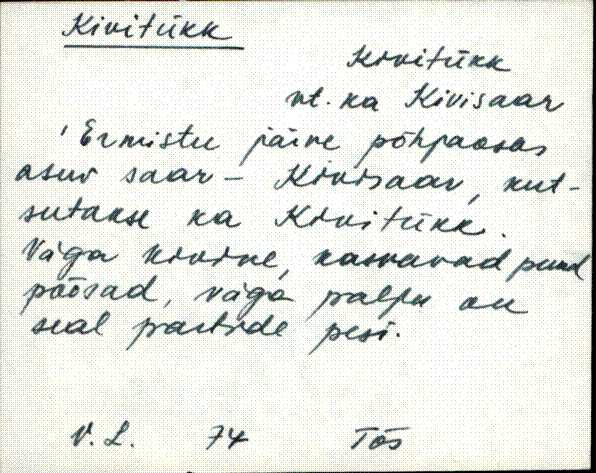 Kivitükk
Kivitükk
vt. ka Kivisaar
'Ermistu järve põhjaosas
asuv saar - Kivisaar, kut-
sutakse ka Kivitükk.
Väga kivine, kasvavad puud
põõsad, väga palju on
seal partide pesi.
V. L. 74 Tõs